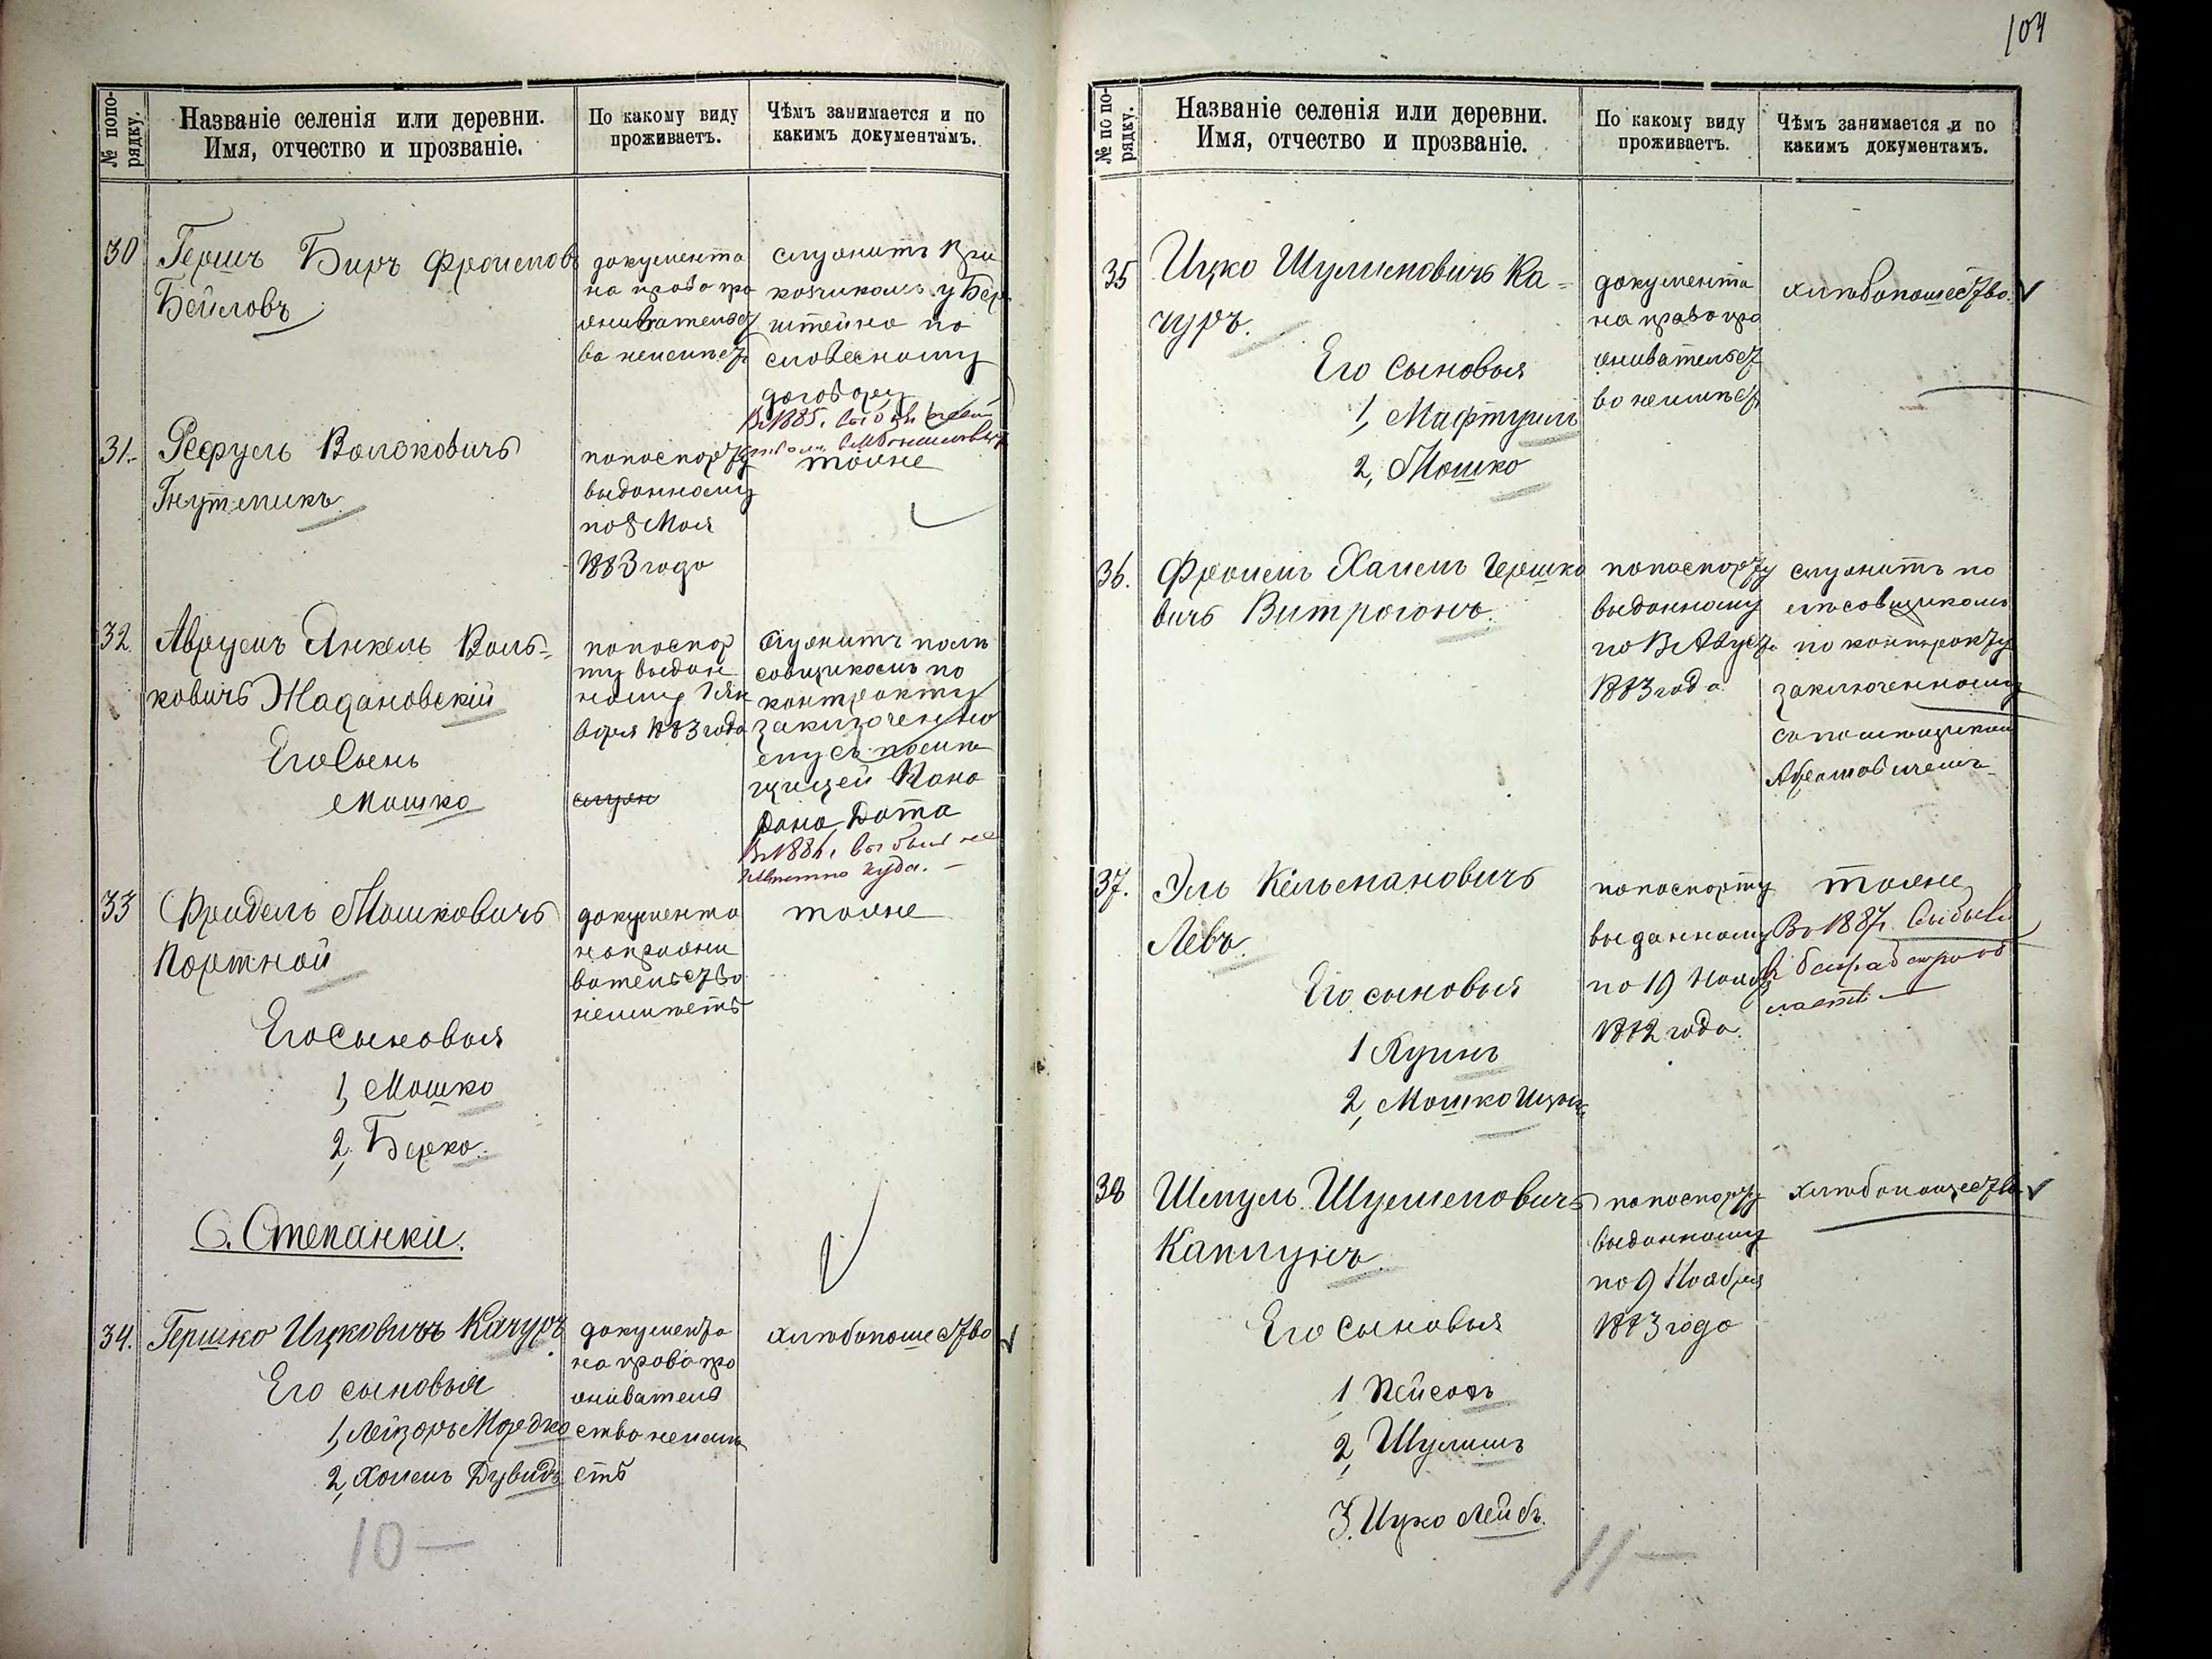 104
№ по по-
рядку.
Названіе селенія или деревни.
Имя, отчество и прозваніе.
По какому виду
проживаетъ.
Чѣмъ занимается и по
какимъ документамъ.
30
Гершъ Беръ Фроимовъ
Бейловъ
документа
на право про
живательст
ва неимѣет
служитъ при
кощикомъ у Бер
штейна по
словесному
договору
В 1885 г.
31.
Исруль Волковичъ
Гнутликъ
по паспорту
выданному
по 8 Мая
1883 года
тоже
32.
Аврумъ Янкель Воль-
ковичъ Жадановскій
Его Сынъ
Мошко
по паспор
ту выдан
ному
варя 1883 года
служ
Служитъ полѣ
совщикомъ по
контракту
заключенно
му съ помѣ
щицей
В 1886 г. выбылъ не
извѣстно куда. —
33
Фридель Мошковичъ
Портной
Его Сыновья
1, Мошко
2, Берко.
документа
на прожи
вательство
неимѣетъ
тоже
С. Степанки.
34.
Гершко Ицковичъ Качуръ
Его сыновья
1, Лейзоръ Мордко
2, Хаимъ Дувидъ
документа
на право про
живатель
ство неимѣ
етъ
хлѣбопашество
10 —
№ по по-
рядку.
Названіе селенія или деревни.
Имя, отчество и прозваніе.
По какому виду
проживаетъ.
Чѣмъ занимается и по
какимъ документамъ.
35
Ицко Шулимовичъ Ка-
чуръ.
Его Сыновья
1, Мафтуиль
2, Мошко
документа
на право про
живательст
во неимѣет
хлѣбопашество.
36.
Фроимъ Хаимъ Гершко
вичъ Витрогонъ.
по паспорту
выданному
по Август
1883 года
служитъ по
лѣсовщикомъ
по контракту
заключенному
съ помѣщикомъ
Абрамовичемъ
37.
Эль Кельмановичъ
Левъ.
Его сыновья
1 Лузинъ
2, Мошко Ицко
по паспорту
выданному
по 19 Нояб
1882 года.
тоже
В 1887 г. выбылъ
в Бессарабскую об
ласть —
38
Шмуль Шулимовичъ
Каплунъ.
Его Сыновья
1 Пейсахъ
2, Шулимъ
3. Ицко Лейбъ.
по паспорту
выданному
по 9 Ноября
1883 года
хлѣбопашество
11 —